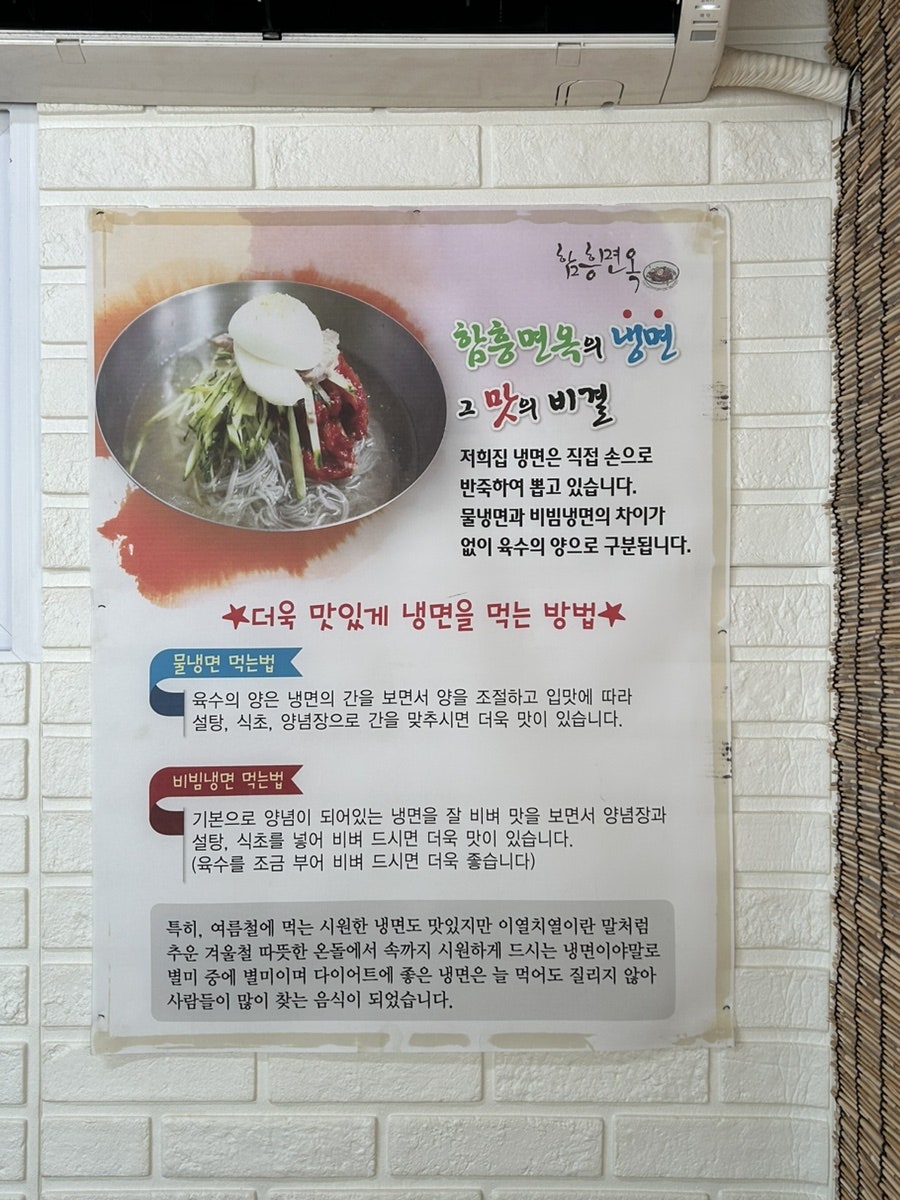 함흥면옥
함흥면옥의 냉면
그 맛의 비결
저희집 냉면은 직접 손으로
반죽하여 뽑고 있습니다.
물냉면과 비빔냉면의 차이가
없이 육수의 양으로 구분됩니다.
★더욱 맛있게 냉면을 먹는 방법★
물냉면 먹는법
육수의 양은 냉면의 간을 보면서 양을 조절하고 입맛에 따라
설탕, 식초, 양념장으로 간을 맞추시면 더욱 맛이 있습니다.
비빔냉면 먹는법
기본으로 양념이 되어있는 냉면을 잘 비벼 맛을 보면서 양념장과
설탕, 식초를 넣어 비벼 드시면 더욱 맛이 있습니다.
(육수를 조금 부어 비벼 드시면 더욱 좋습니다)
특히, 여름철에 먹는 시원한 냉면도 맛있지만 이열치열이란 말처럼
추운 겨울철 따뜻한 온돌에서 속까지 시원하게 드시는 냉면이야말로
별미 중에 별미이며 다이어트에 좋은 냉면은 늘 먹어도 질리지 않아
사람들이 많이 찾는 음식이 되었습니다.